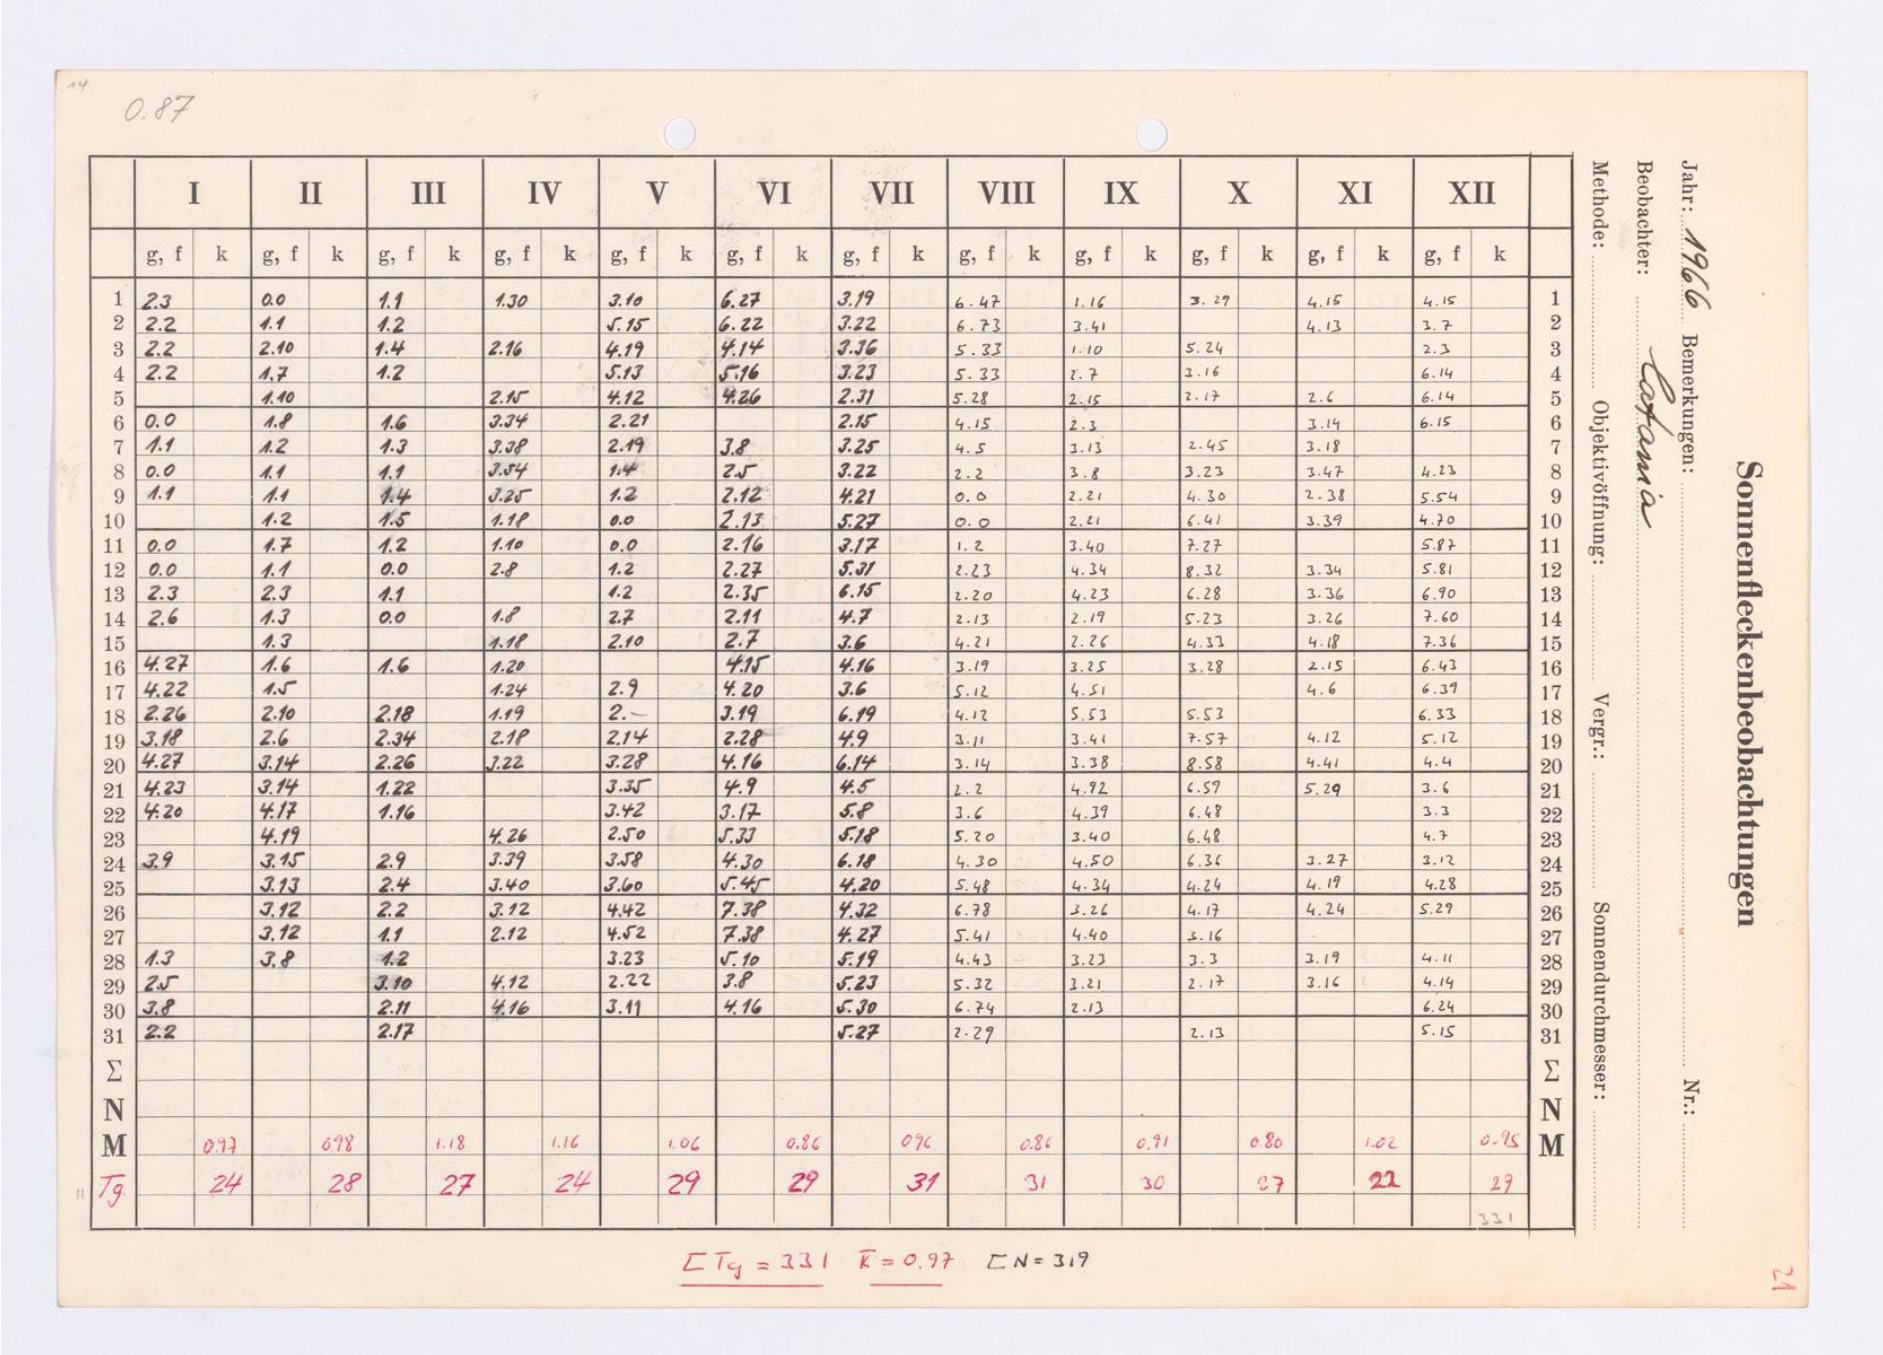 14
0.87
I II III IV V VI VII VIII IX X XI XII
g, f k g, f k g, f k g, f k g, f k g, f k g, f k g, f k g, f k g, f k g, f k g, f k
1 2.3 0.0 1.1 1.30 3.10 6.27 3.19 6.47 1.16 3.29 4.15 4.15 1
2 2.2 1.1 1.2 5.15 6.22 3.22 6.73 3.41 4.13 3.7 2
3 2.2 2.10 1.4 2.16 4.19 4.14 3.36 5.33 1.10 5.24 2.3 3
4 2.2 1.7 1.2 5.13 5.16 3.23 5.33 2.7 3.16 6.14 4
5 1.10 2.15 4.12 4.26 2.31 5.28 2.15 2.17 2.6 6.14 5
6 0.0 1.8 1.6 3.34 2.21 2.15 4.15 2.3 3.14 6.15 6
7 1.1 1.2 1.3 3.38 2.19 3.8 3.25 4.5 3.13 2.45 3.18 7
8 0.0 1.1 1.1 3.54 1.4 2.5 3.22 2.2 3.8 3.23 3.47 4.23 8
9 1.1 1.1 1.4 3.25 1.2 2.12 4.21 0.0 2.21 4.30 2.38 5.54 9
10 1.2 1.5 1.18 0.0 2.13 5.27 0.0 2.21 6.41 3.39 4.70 10
11 0.0 1.7 1.2 1.10 0.0 2.16 3.17 1.2 3.40 7.27 5.87 11
12 0.0 1.1 0.0 2.8 1.2 2.27 5.31 2.23 4.34 8.32 3.34 5.81 12
13 2.3 2.3 1.1 1.2 2.35 6.15 2.20 4.23 6.28 3.36 6.90 13
14 2.6 1.3 0.0 1.8 2.7 2.11 4.7 2.13 2.19 5.23 3.26 7.60 14
15 1.3 1.18 2.10 2.7 3.6 4.21 2.26 4.33 4.18 7.36 15
16 4.27 1.6 1.6 1.20 4.15 4.16 3.19 3.25 3.28 2.15 6.43 16
17 4.22 1.5 1.24 2.9 4.20 3.6 5.12 4.51 4.6 6.39 17
18 2.26 2.10 2.18 1.19 2.– 3.19 6.19 4.12 5.53 5.53 6.33 18
19 3.18 2.6 2.34 2.18 2.14 2.28 4.9 3.11 3.41 7.57 4.12 5.12 19
20 4.27 3.14 2.26 3.22 3.28 4.16 6.14 3.14 3.38 8.58 4.41 4.4 20
21 4.23 3.14 1.22 3.35 4.9 4.5 2.2 4.92 6.59 5.29 3.6 21
22 4.20 4.17 1.16 3.42 3.17 5.8 3.6 4.39 6.48 3.3 22
23 4.19 4.26 2.50 5.33 5.18 5.20 3.40 6.48 4.7 23
24 3.9 3.15 2.9 3.39 3.58 4.30 6.18 4.30 4.50 6.36 3.27 3.12 24
25 3.13 2.4 3.40 3.60 5.45 4.20 5.48 4.34 4.24 4.19 4.28 25
26 3.12 2.2 3.12 4.42 7.38 4.32 6.78 3.26 4.17 4.24 5.29 26
27 3.12 1.1 2.12 4.52 7.38 4.27 5.41 4.40 3.16 27
28 1.3 3.8 1.2 3.23 5.10 5.19 4.43 3.23 3.3 3.19 4.11 28
29 2.5 3.10 4.12 2.22 3.8 5.23 5.32 3.21 2.17 3.16 4.14 29
30 3.8 2.11 4.16 3.11 4.16 5.30 6.74 2.13 6.24 30
31 2.2 2.17 5.27 2.29 2.13 5.15 31
Σ Σ
N N
M 0.97 0.98 1.18 1.16 1.06 0.86 0.96 0.86 0.91 0.80 1.02 0.95 M
Tg 24 28 27 24 29 29 31 31 30 27 22 29
331
Σ Tg = 331 k̅ = 0.97 Σ N = 319
Sonnenfleckenbeobachtungen
Jahr: 1966 Bemerkungen: Nr.:
Beobachter: Catania
Methode: Objektivöffnung: Vergr.: Sonnendurchmesser:
21